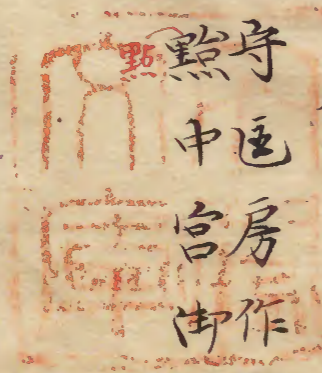 守匡房作
中宮御
點